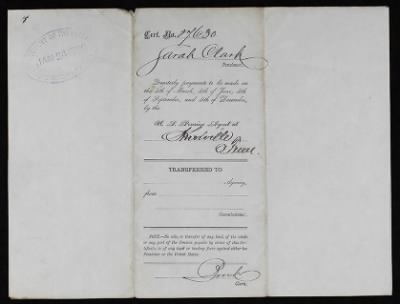 Cert. No. 87630
Sarah Clark
Pensioner.
Quarterly payments to be made on
the 4th of March, 4th of June, 4th
of September, and 4th of December,
by the
U. S. Pension Agent at
Knoxville
Tenn.
TRANSFERRED TO
Agency,
from
Commissioner.
NOTE.—No sale, or transfer of any kind, of the whole
or any part of the Pension payable by virtue of this Cer-
tificate, is of any binding force against either the
Pensioner or the United States.
Clerk.